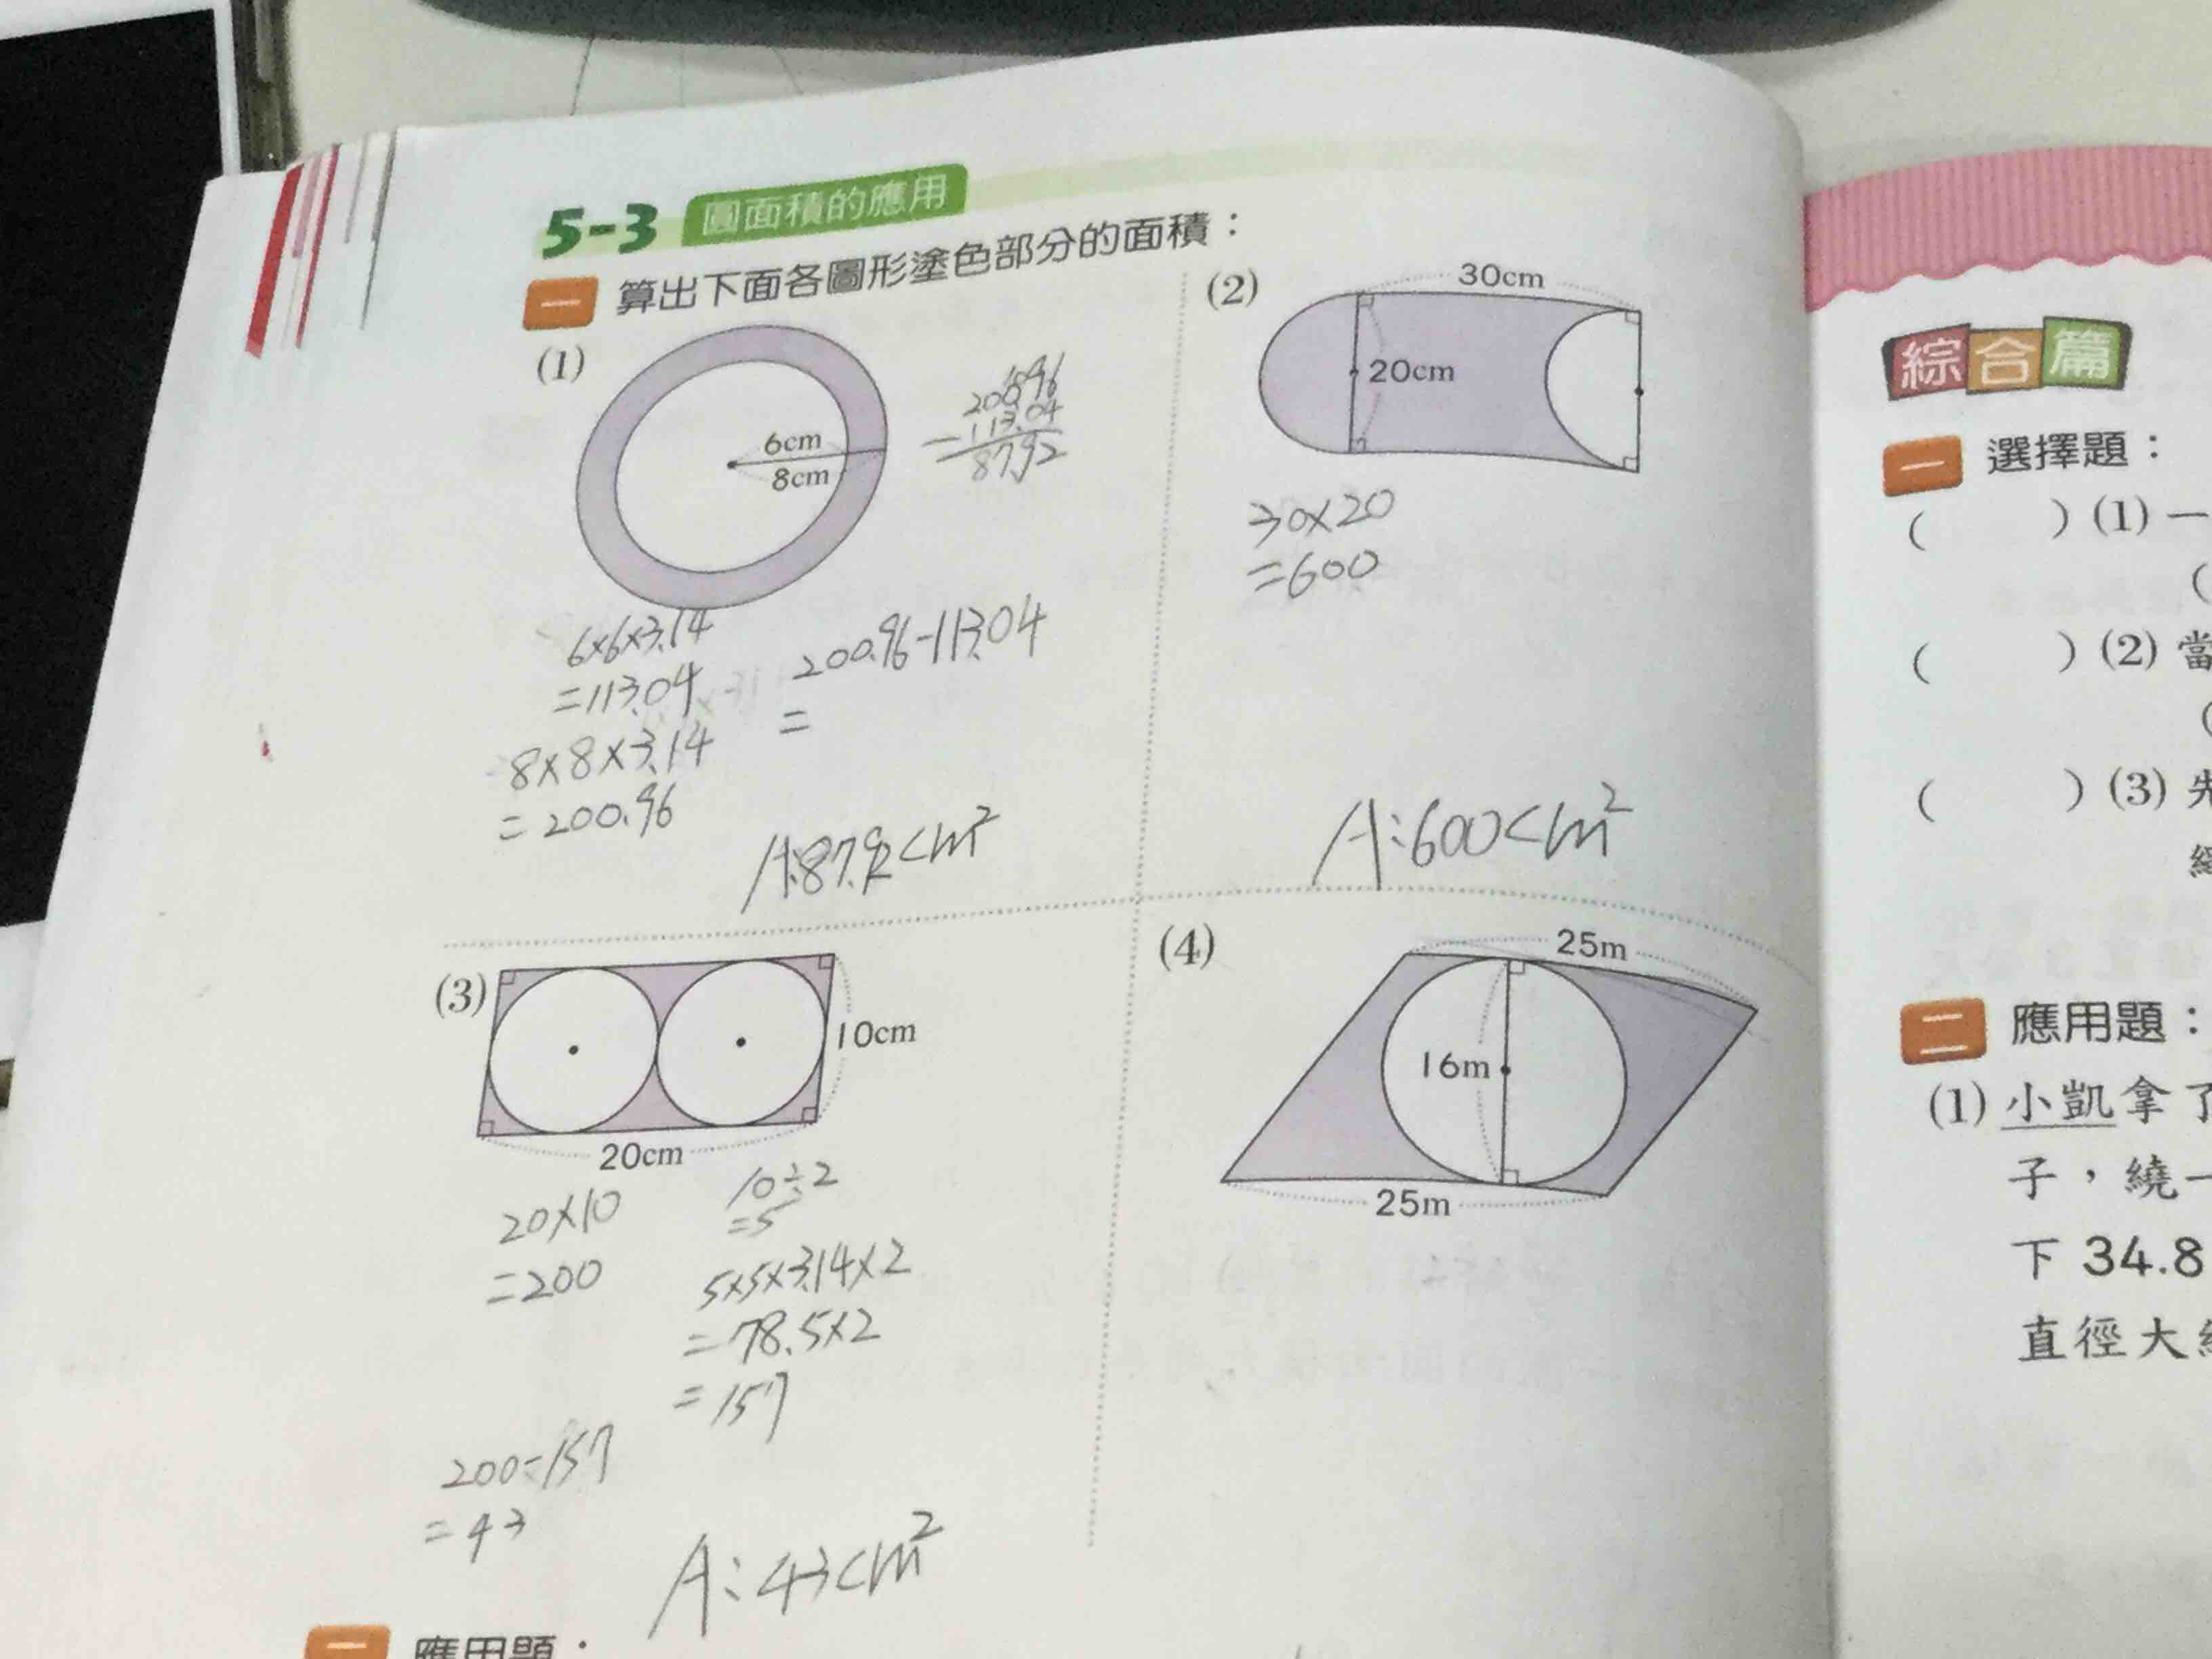 5-3 圓面積的應用
一 算出下面各圖形塗色部分的面積：
(1)
6cm
8cm
200.96
113.04
87.92
6×6×3.14
=113.04
8×8×3.14
=200.96
200.96-113.04
=
A:87.92cm²
(2)
30cm
20cm
30×20
=600
A:600cm²
(3)
10cm
20cm
20×10
=200
10÷2
=5
5×5×3.14×2
=78.5×2
=157
200-157
=43
A:43cm²
(4)
25m
16m
25m
二 應用題：
綜合篇
一 選擇題：
( )(1) 一
(
( )(2) 當
(
( )(3) 先
二 應用題：
(1) 小凱拿了
子，繞一
下 34.8
直徑大